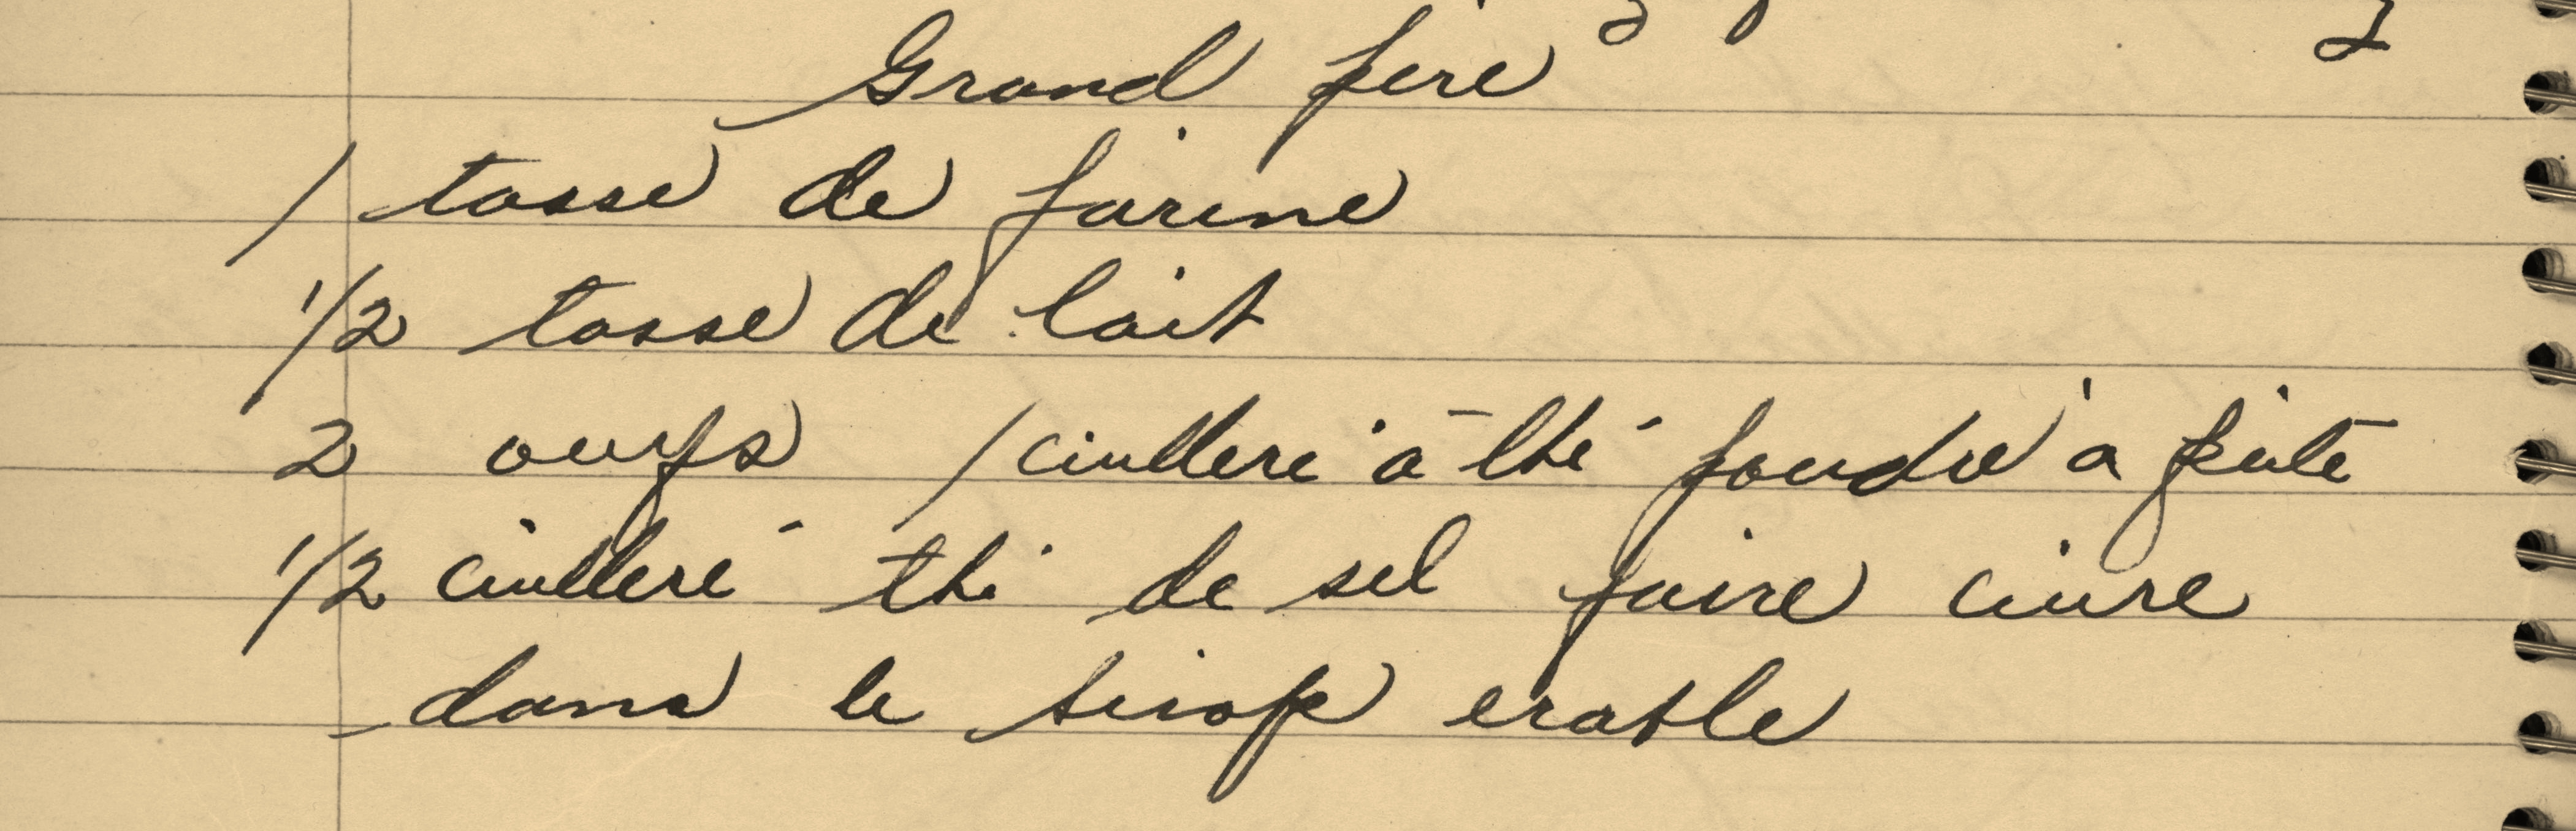 Grand pere
1 tasse de farine
1/2 tasse de lait
2 oeufs 1 cuilleré à thé poudre à pâte
1/2 cuilleré thé de sel faire cuire
dans le sirop erable